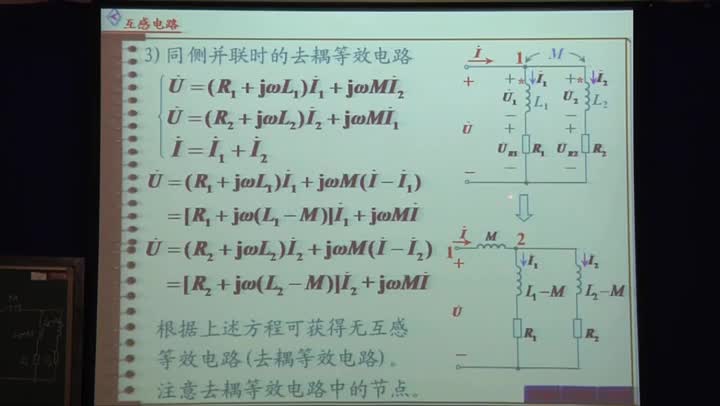 互感电路
3) 同侧并联时的去耦等效电路
U̇ = (R₁ + jωL₁)İ₁ + jωMİ₂
U̇ = (R₂ + jωL₂)İ₂ + jωMİ₁
İ = İ₁ + İ₂
U̇ = (R₁ + jωL₁)İ₁ + jωM(İ − İ₁)
= [R₁ + jω(L₁ − M)]İ₁ + jωMİ
U̇ = (R₂ + jωL₂)İ₂ + jωM(İ − İ₂)
= [R₂ + jω(L₂ − M)]İ₂ + jωMİ
根据上述方程可获得无互感
等效电路(去耦等效电路)。
注意去耦等效电路中的节点。
İ 1 M
+ + * İ₁ + * İ₂
U̇₁ L₁ U̇₂ L₂
− −
U̇ + +
U̇R1 R₁ U̇R2 R₂
− − −
İ M 2
1 İ₁ İ₂
+
L₁−M L₂−M
U̇
R₁ R₂
−